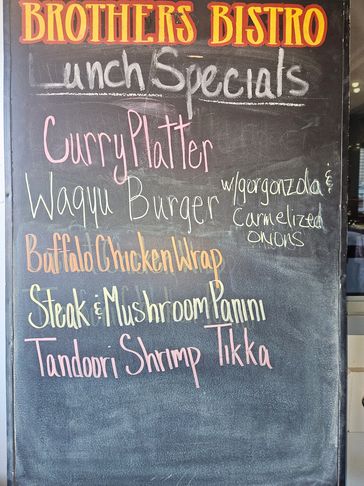 BROTHERS BISTRO
Lunch Specials
Curry Platter
Wagyu Burger w/gorgonzola &
Carmelized
onions
Buffalo Chicken Wrap
Steak & Mushroom Panini
Tandoori Shrimp Tikka